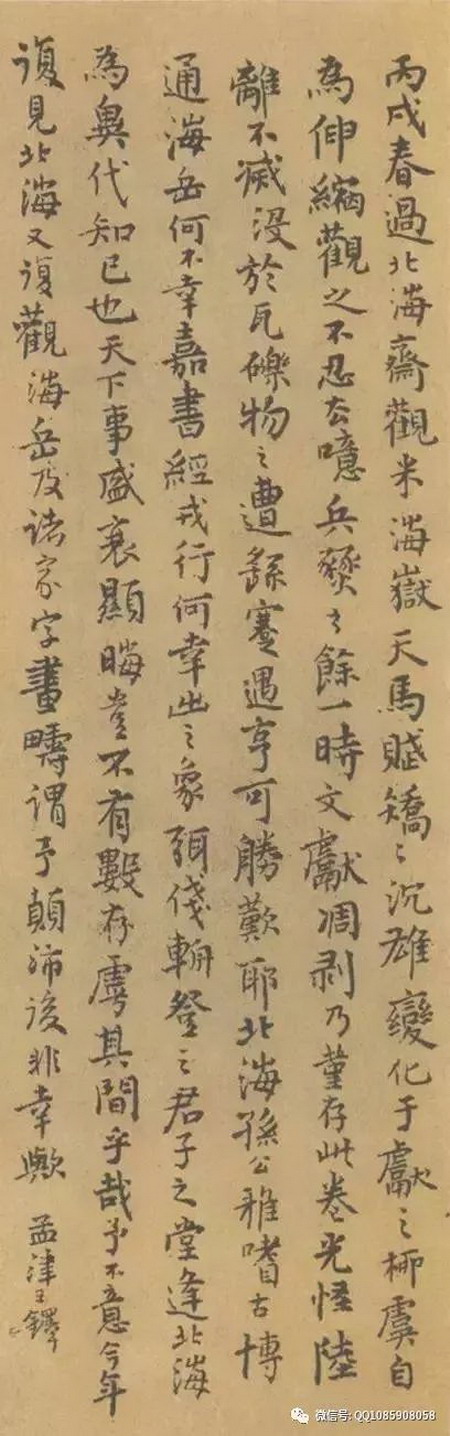 丙戌春過北海齋觀米海嶽天馬賦矯〻沉雄變化于獻之柳虞自
為伸縮觀之不忍去噫兵燹之餘一時文獻凋剥乃堇存此卷光怪陸
離不滅没於瓦礫物之遭繇蹇遇亨可勝歎耶北海孫公雅嗜古博
通海岳何不幸嘉書經戎行何幸出之象弭後輈登之君子之堂逢北海
為異代知已也天下事盛衰顯晦豈不有數存虖其間乎哉予不意今年
復見北海又復觀海岳及諸家字畫疇謂予顛沛後非幸歟 孟津王鐸
微信号: QQ1085908058